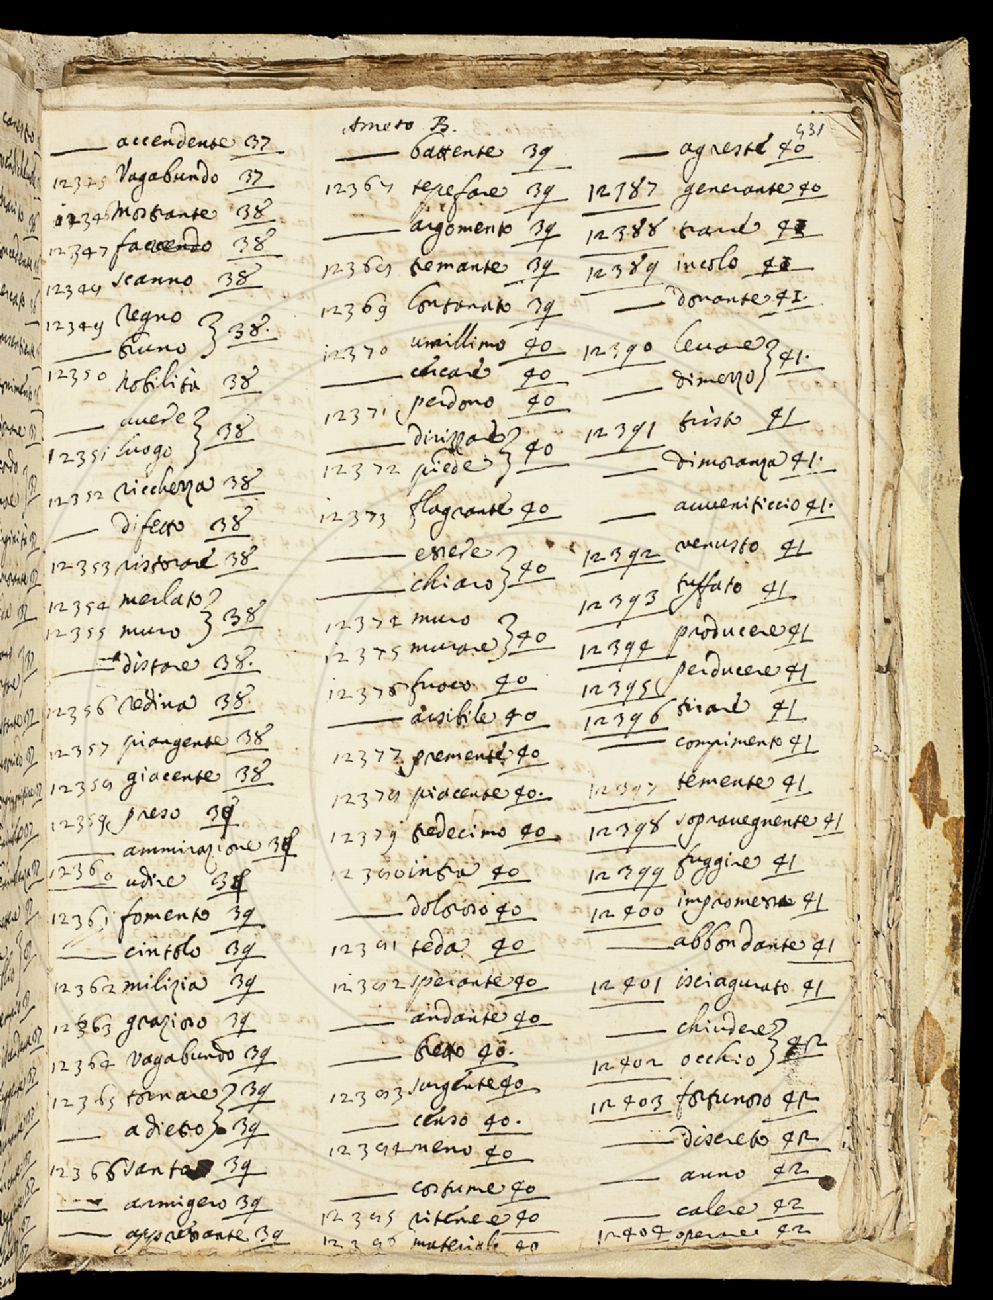 Ameto B.
431
— accendente 37
12345 Vagabundo 37
12346 Mostrante 38
12347 faccendo 38
12348 scanno 38
12349 Regno
— bruno } 38.
12350 Nobilità 38
— avere
12351 luogo } 38
12352 ricchezza 38
— difetto 38
12353 ristorare 38
12354 merlato
12355 muro } 38
— distare 38.
12356 redina 38.
12357 piangente 38
12358 giacente 38
12359 preso 39
— ammirazione 39
12360 udire 39
12361 fomento 39
— cintolo 39
12362 milizia 39
12363 grazioso 39
12364 vagabundo 39
12365 tornare } 39
— a dieto } 39
12366 santa 39
— armigero 39
— appressante 39
— battente 39
12367 tepefare 39
— argomento 39
12368 tremante 39
12369 lontanato 39
12370 umillimo 40
— cercare 40
12371 perdono 40
— dirizzare
12372 piede } 40
12373 flagrante 40
— essere
— chiaro } 40
12374 muro
12375 murare } 40
12376 fuoco 40
— arsibile 40
12377 premente 40
12378 piacente 40.
12379 tredecimo 40
12380 infra 40
— doloroso 40
12381 teda 40
12382 sperante 40
— andante 40
— tetto 40.
12383 surgente 40
— censo 40.
12384 meno 40
— costume 40
12385 ritenere 40
12386 materiale 40
— agreste 40
12387 generante 40
12388 trarre 41
12389 incolo 41
— donante 41.
12390 levare
— dimezzo } 41.
12391 tristo 41
— dimoranza 41.
— avveniticcio 41.
12392 venusto 41
12393 tuffato 41
12394 producere 41
12395 perducere 41
12396 tirare 41
— compimento 41
12397 temente 41
12398 sopravegnente 41
12399 fuggire 41
12400 impromessa 41
— abbondante 41
12401 isciagurato 41
— chiudere
12402 occhio } 42
12403 fortunoso 42
— discreto 42
— anno 42
— calere 42
12404 operare 42